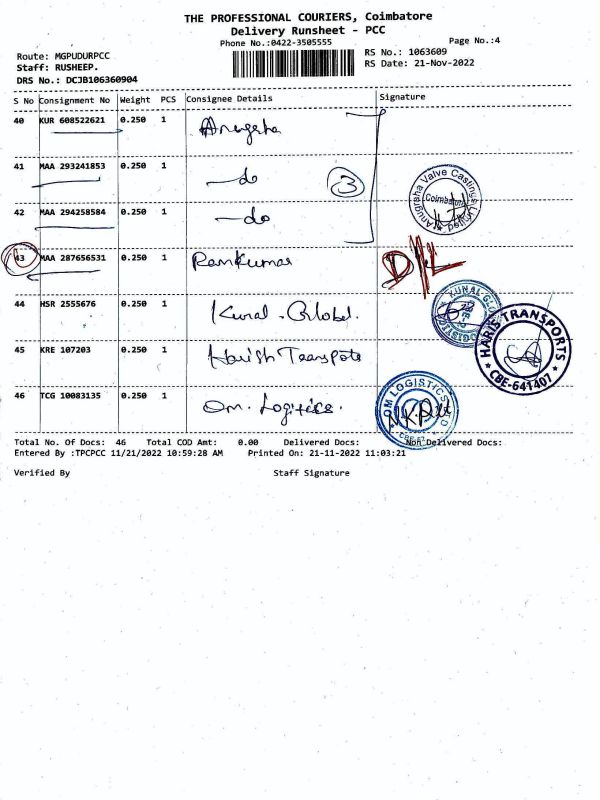 THE PROFESSIONAL COURIERS, Coimbatore
Delivery Runsheet - PCC
Phone No.:0422-3505555
Page No.:4
Route: MGPUDURPCC
RS No.: 1063609
Staff: RUSHEEP.
RS Date: 21-Nov-2022
DRS No.: DCJB106360904
S No Consignment No Weight PCS Consignee Details Signature
40 KUR 608522621 0.250 1 Anugraha
41 MAA 293241853 0.250 1 —do
3
Anugraha Valve Castings Limited
Coimbatore
42 MAA 294258584 0.250 1 —do
43 MAA 287656531 0.250 1 Ramkumar D/L
44 HSR 2555676 0.250 1 Kunal Global.
KUNAL GLO
LOGISTIC
HARIS TRANSPORTS
CBE-641407
45 KRE 107203 0.250 1 Harish Transpots
46 TCG 10083135 0.250 1 Om. Logistics.
OM LOGISTICS LTD
Total No. Of Docs: 46 Total COD Amt: 0.00 Delivered Docs: Non Delivered Docs:
Entered By :TPCPCC 11/21/2022 10:59:28 AM Printed On: 21-11-2022 11:03:21
Verified By Staff Signature